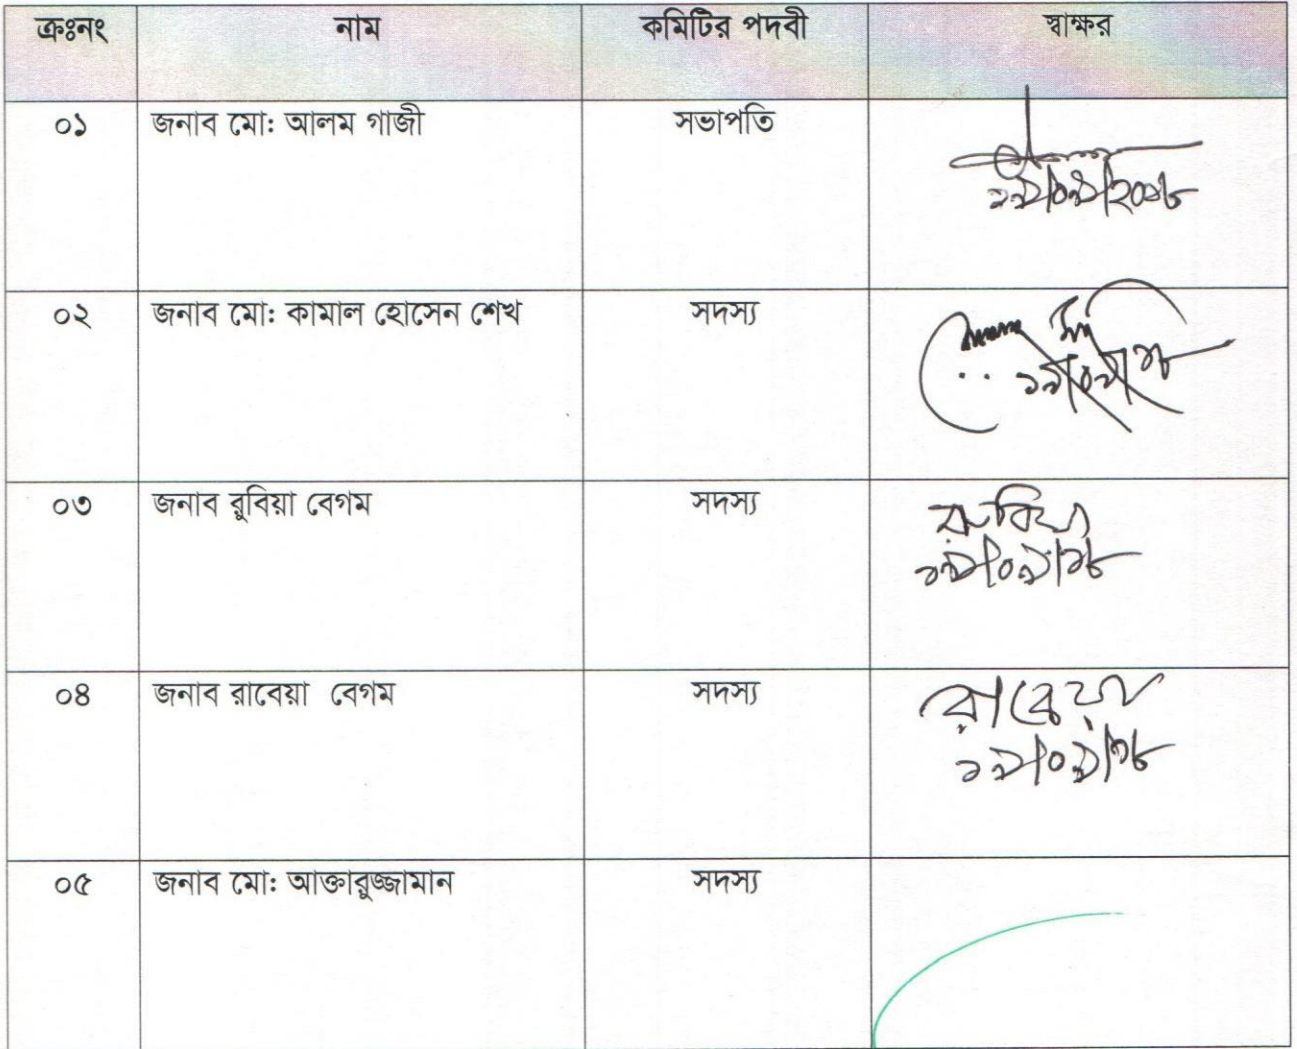 ক্রঃনং নাম কমিটির পদবী স্বাক্ষর
০১ জনাব মো: আলম গাজী সভাপতি
১৯/০৯/২০১৮
০২ জনাব মো: কামাল হোসেন শেখ সদস্য
১৯/০৯/১৮
০৩ জনাব রুবিয়া বেগম সদস্য রুবিয়া
১৯/০৯/১৮
০৪ জনাব রাবেয়া বেগম সদস্য রাবেয়া
১৯/০৯/১৮
০৫ জনাব মো: আক্তারুজ্জামান সদস্য